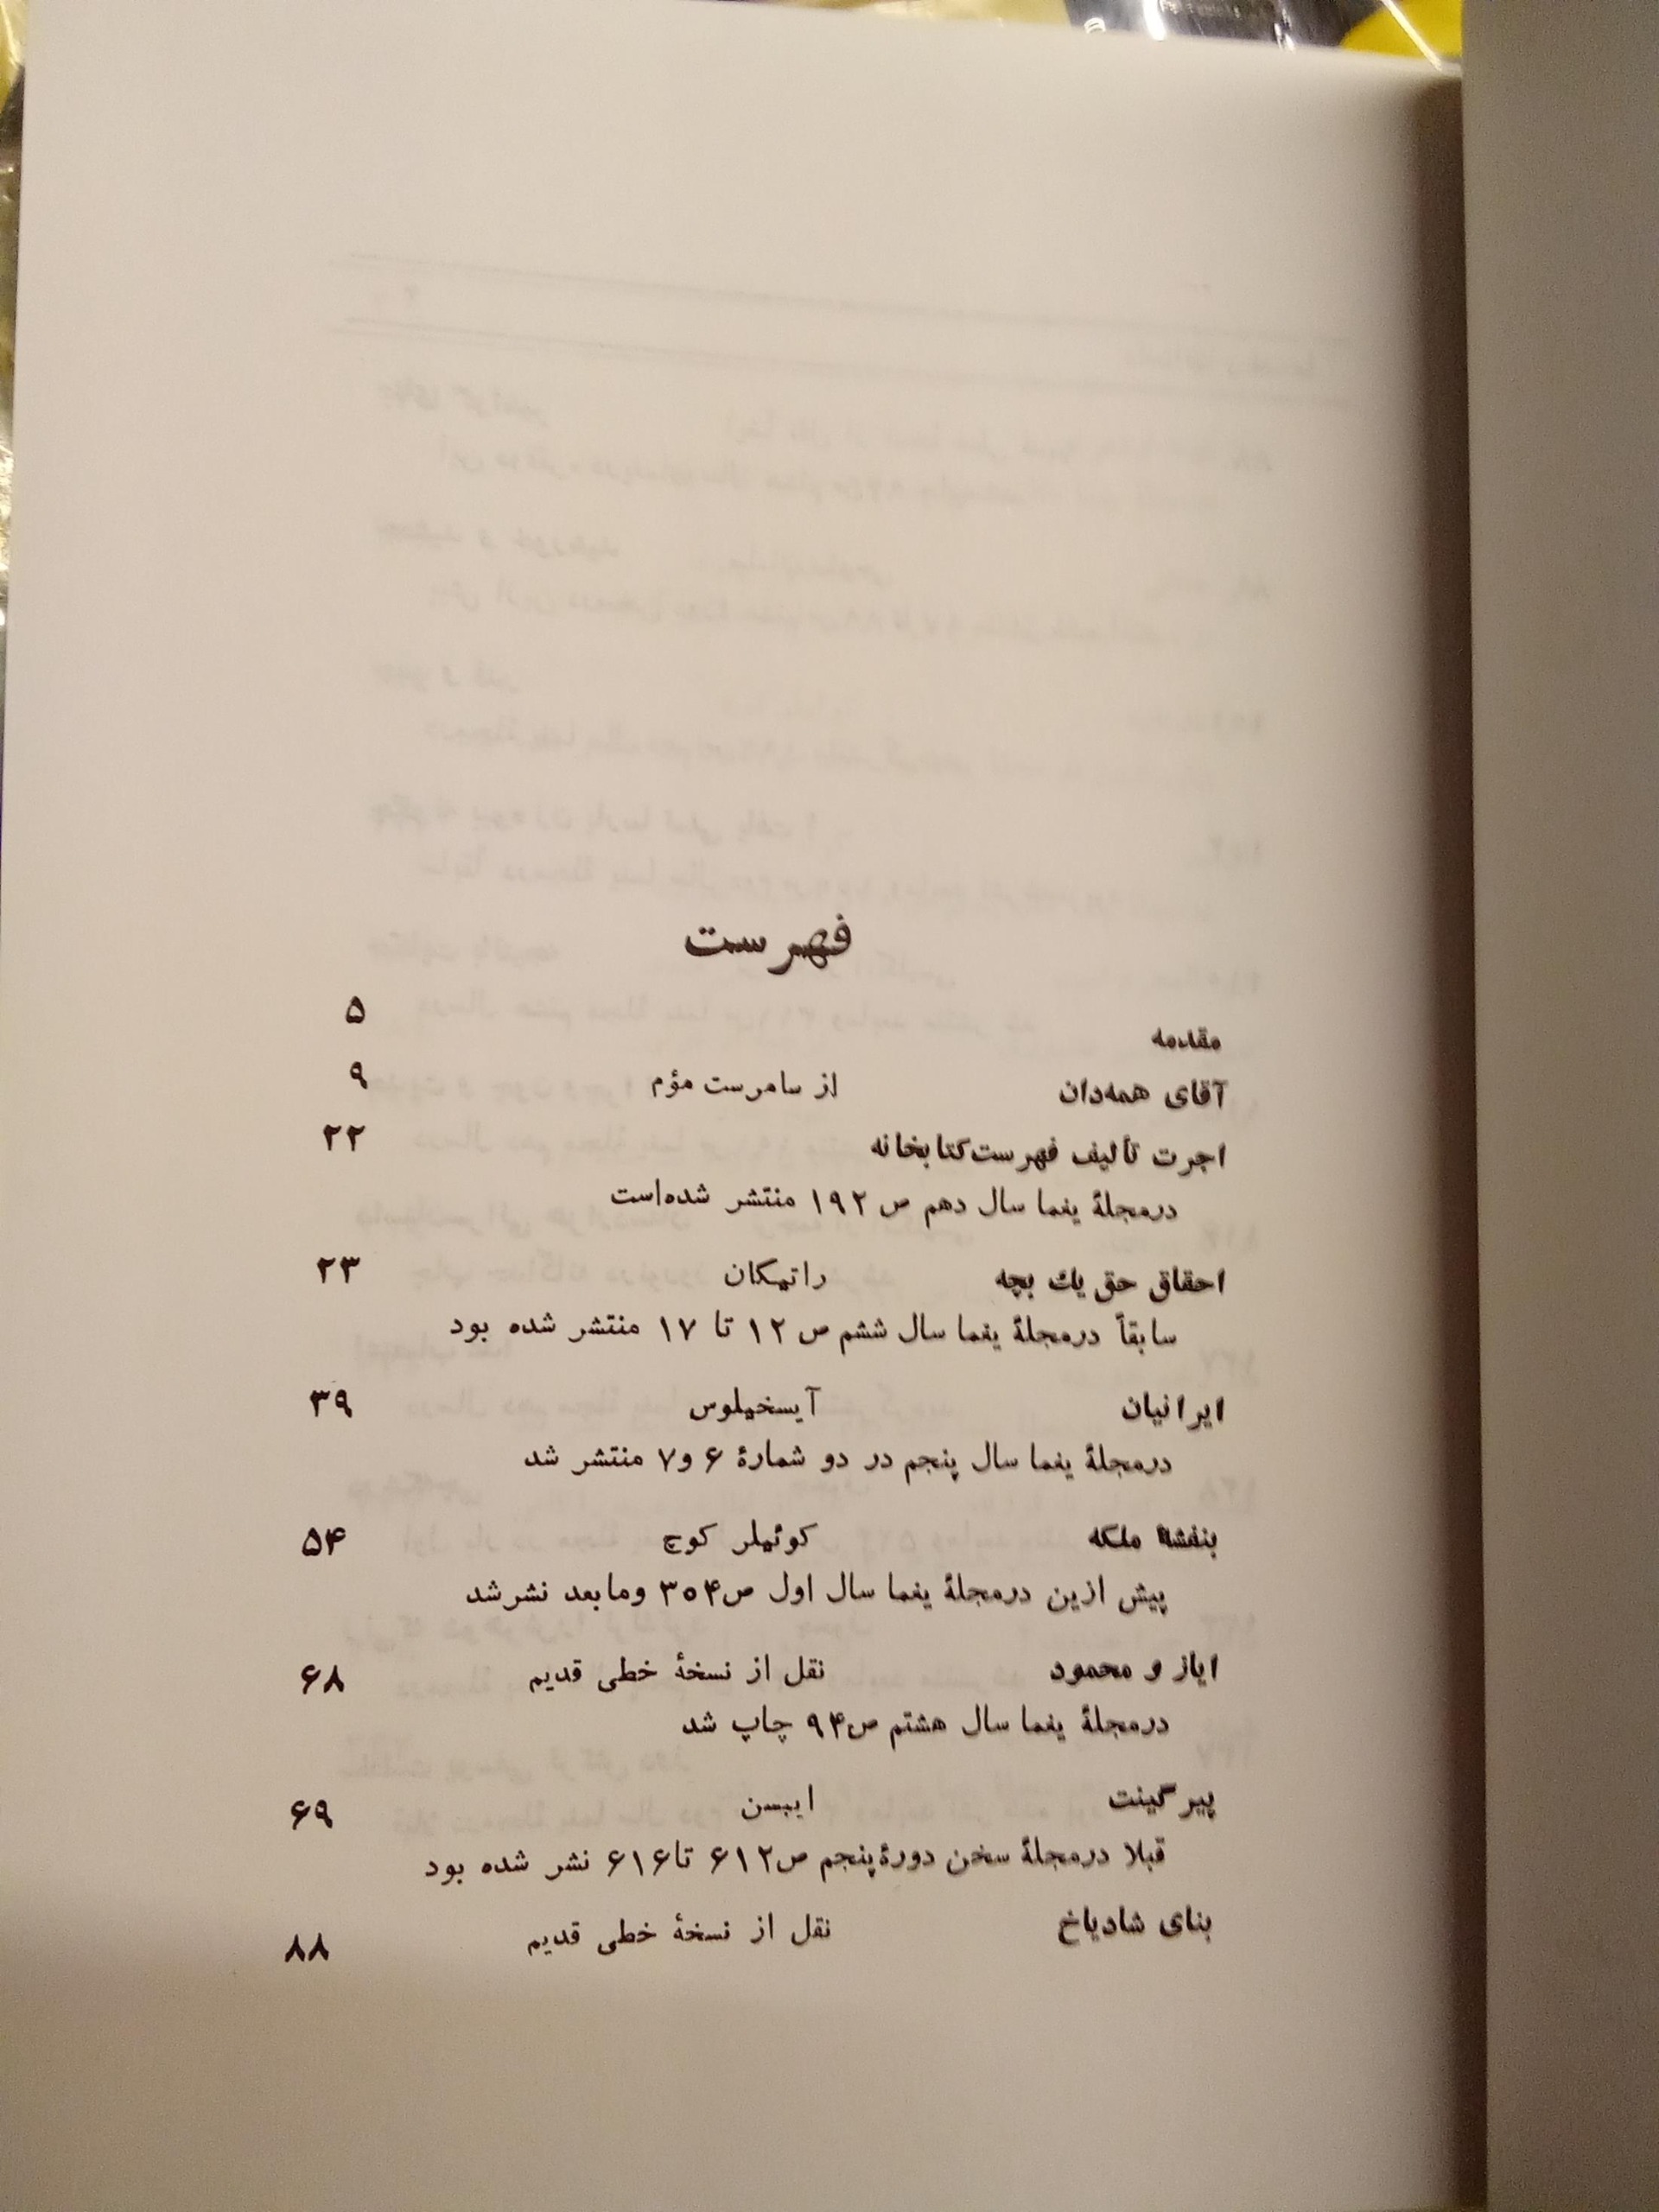 فهرست
مقدمه ۵
آقای همه‌دان از سامرست مؤم ۹
اجرت تألیف فهرست‌کتابخانه ۲۲
درمجلهٔ یغما سال دهم ص ۱۹۲ منتشر شده‌است
احقاق حق یك بچه راتیگان ۲۳
سابقاً درمجلهٔ یغما سال ششم ص ۱۲ تا ۱۷ منتشر شده بود
ایرانیان آیسخیلوس ۳۹
درمجلهٔ یغما سال پنجم در دو شمارهٔ ۶ و۷ منتشر شد
بنفشهٔ ملکه کوئیلر کوچ ۵۴
پیش ازین درمجلهٔ یغما سال اول ص۳۵۴ ومابعد نشرشد
ایاز و محمود نقل از نسخهٔ خطی قدیم ۶۸
درمجلهٔ یغما سال هشتم ص۹۴ چاپ شد
پیرگینت ایبسن ۶۹
قبلا درمجلهٔ سخن دورهٔ‌پنجم ص۶۱۲ تا۶۱۶ نشر شده بود
بنای شادیاخ نقل از نسخهٔ خطی قدیم ۸۸